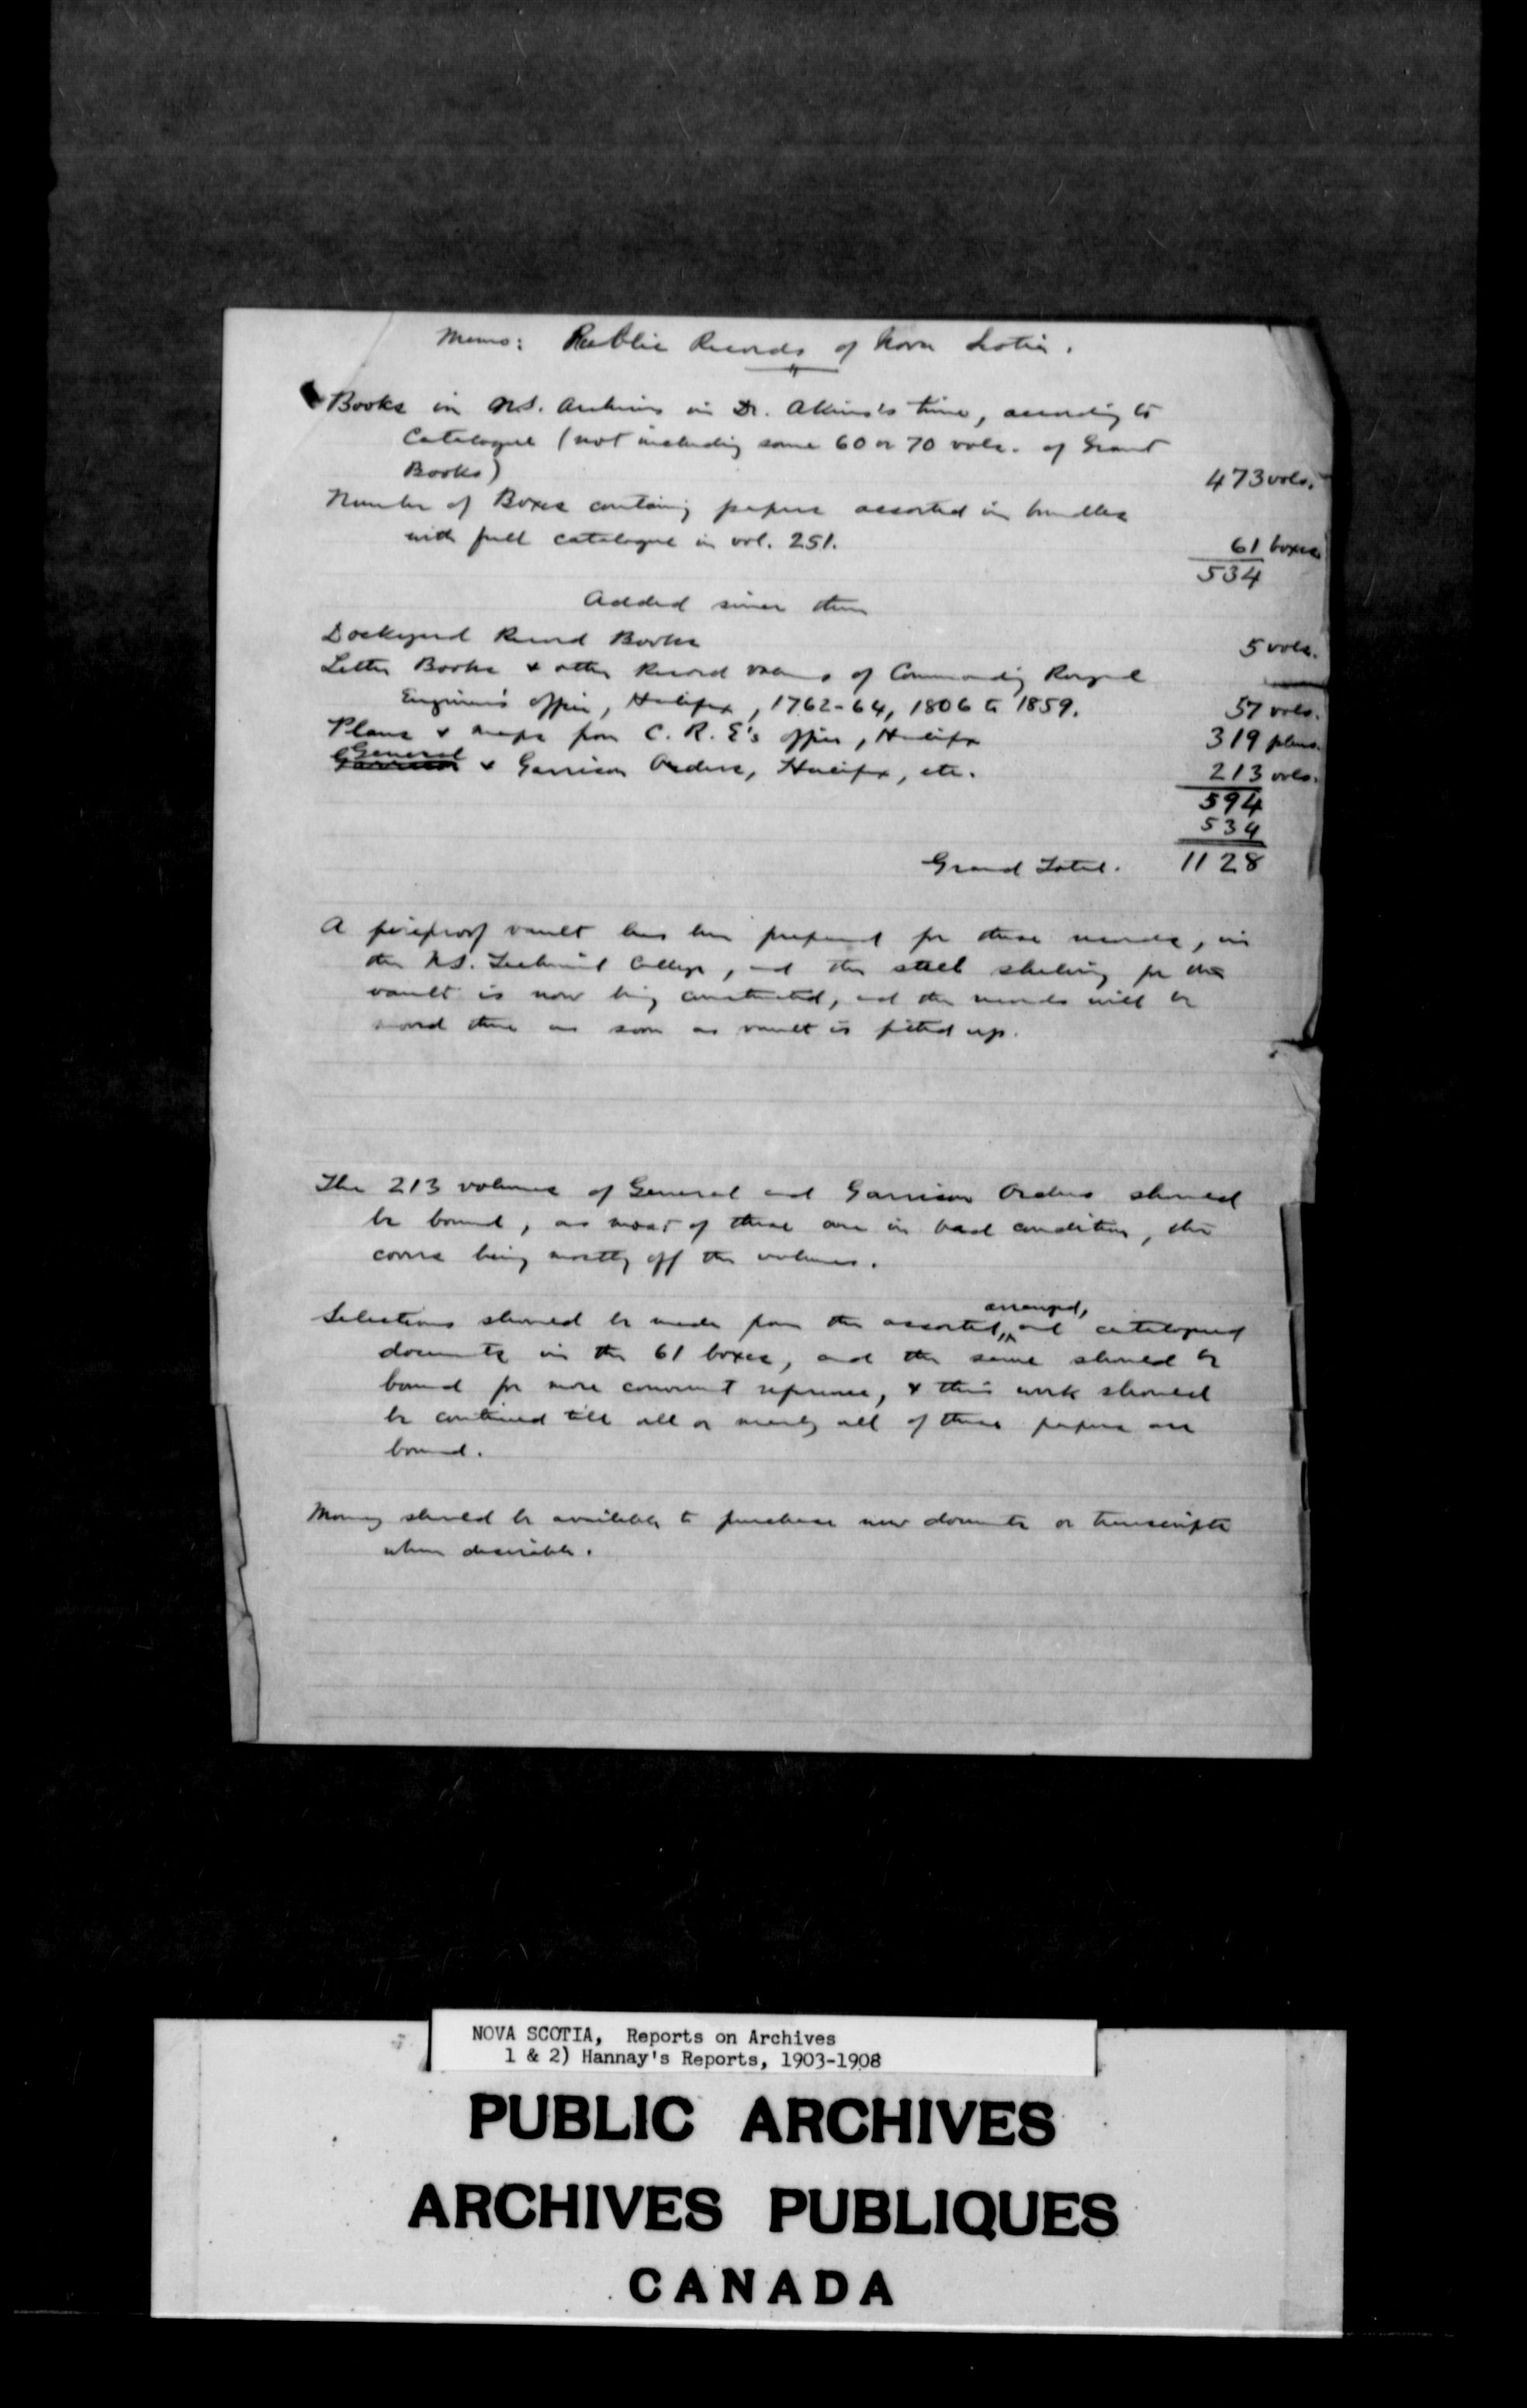 Memo: Public Records of Nova Scotia.
Books in N.S. Archives in Dr. Akins's time, according to
Catalogue (not including some 60 or 70 vols. of Grant
Books) 473 vols.
Number of Boxes containing papers assorted in bundles
with full catalogue in vol. 251. 61 boxes
534
Added since then
Dockyard Record Books 5 vols.
Letter Books & other Record volumes of Commanding Royal
Engineer's office, Halifax, 1762-64, 1806 to 1859. 57 vols.
Plans & maps from C. R. E's office, Halifax 319 plans.
General
Garrison & Garrison Orders, Halifax, etc. 213 vols.
594
534
Grand Total. 1128
A fireproof vault has been prepared for these records, in
the N.S. Technical College, and the steel shelving for the
vault is now being constructed, and the records will be
moved there as soon as vault is fitted up.
The 213 volumes of General and Garrison Orders should
be bound, as most of these are in bad condition, the
covers being mostly off the volumes.
arranged,
Selections should be made from the assorted, and catalogued
documents in the 61 boxes, and the same should be
bound for more convenient reference, & this work should
be continued till all or nearly all of these papers are
bound.
Money should be available to purchase new documents or transcripts
when desirable.
NOVA SCOTIA, Reports on Archives
1 & 2) Hannay's Reports, 1903-1908
PUBLIC ARCHIVES
ARCHIVES PUBLIQUES
CANADA